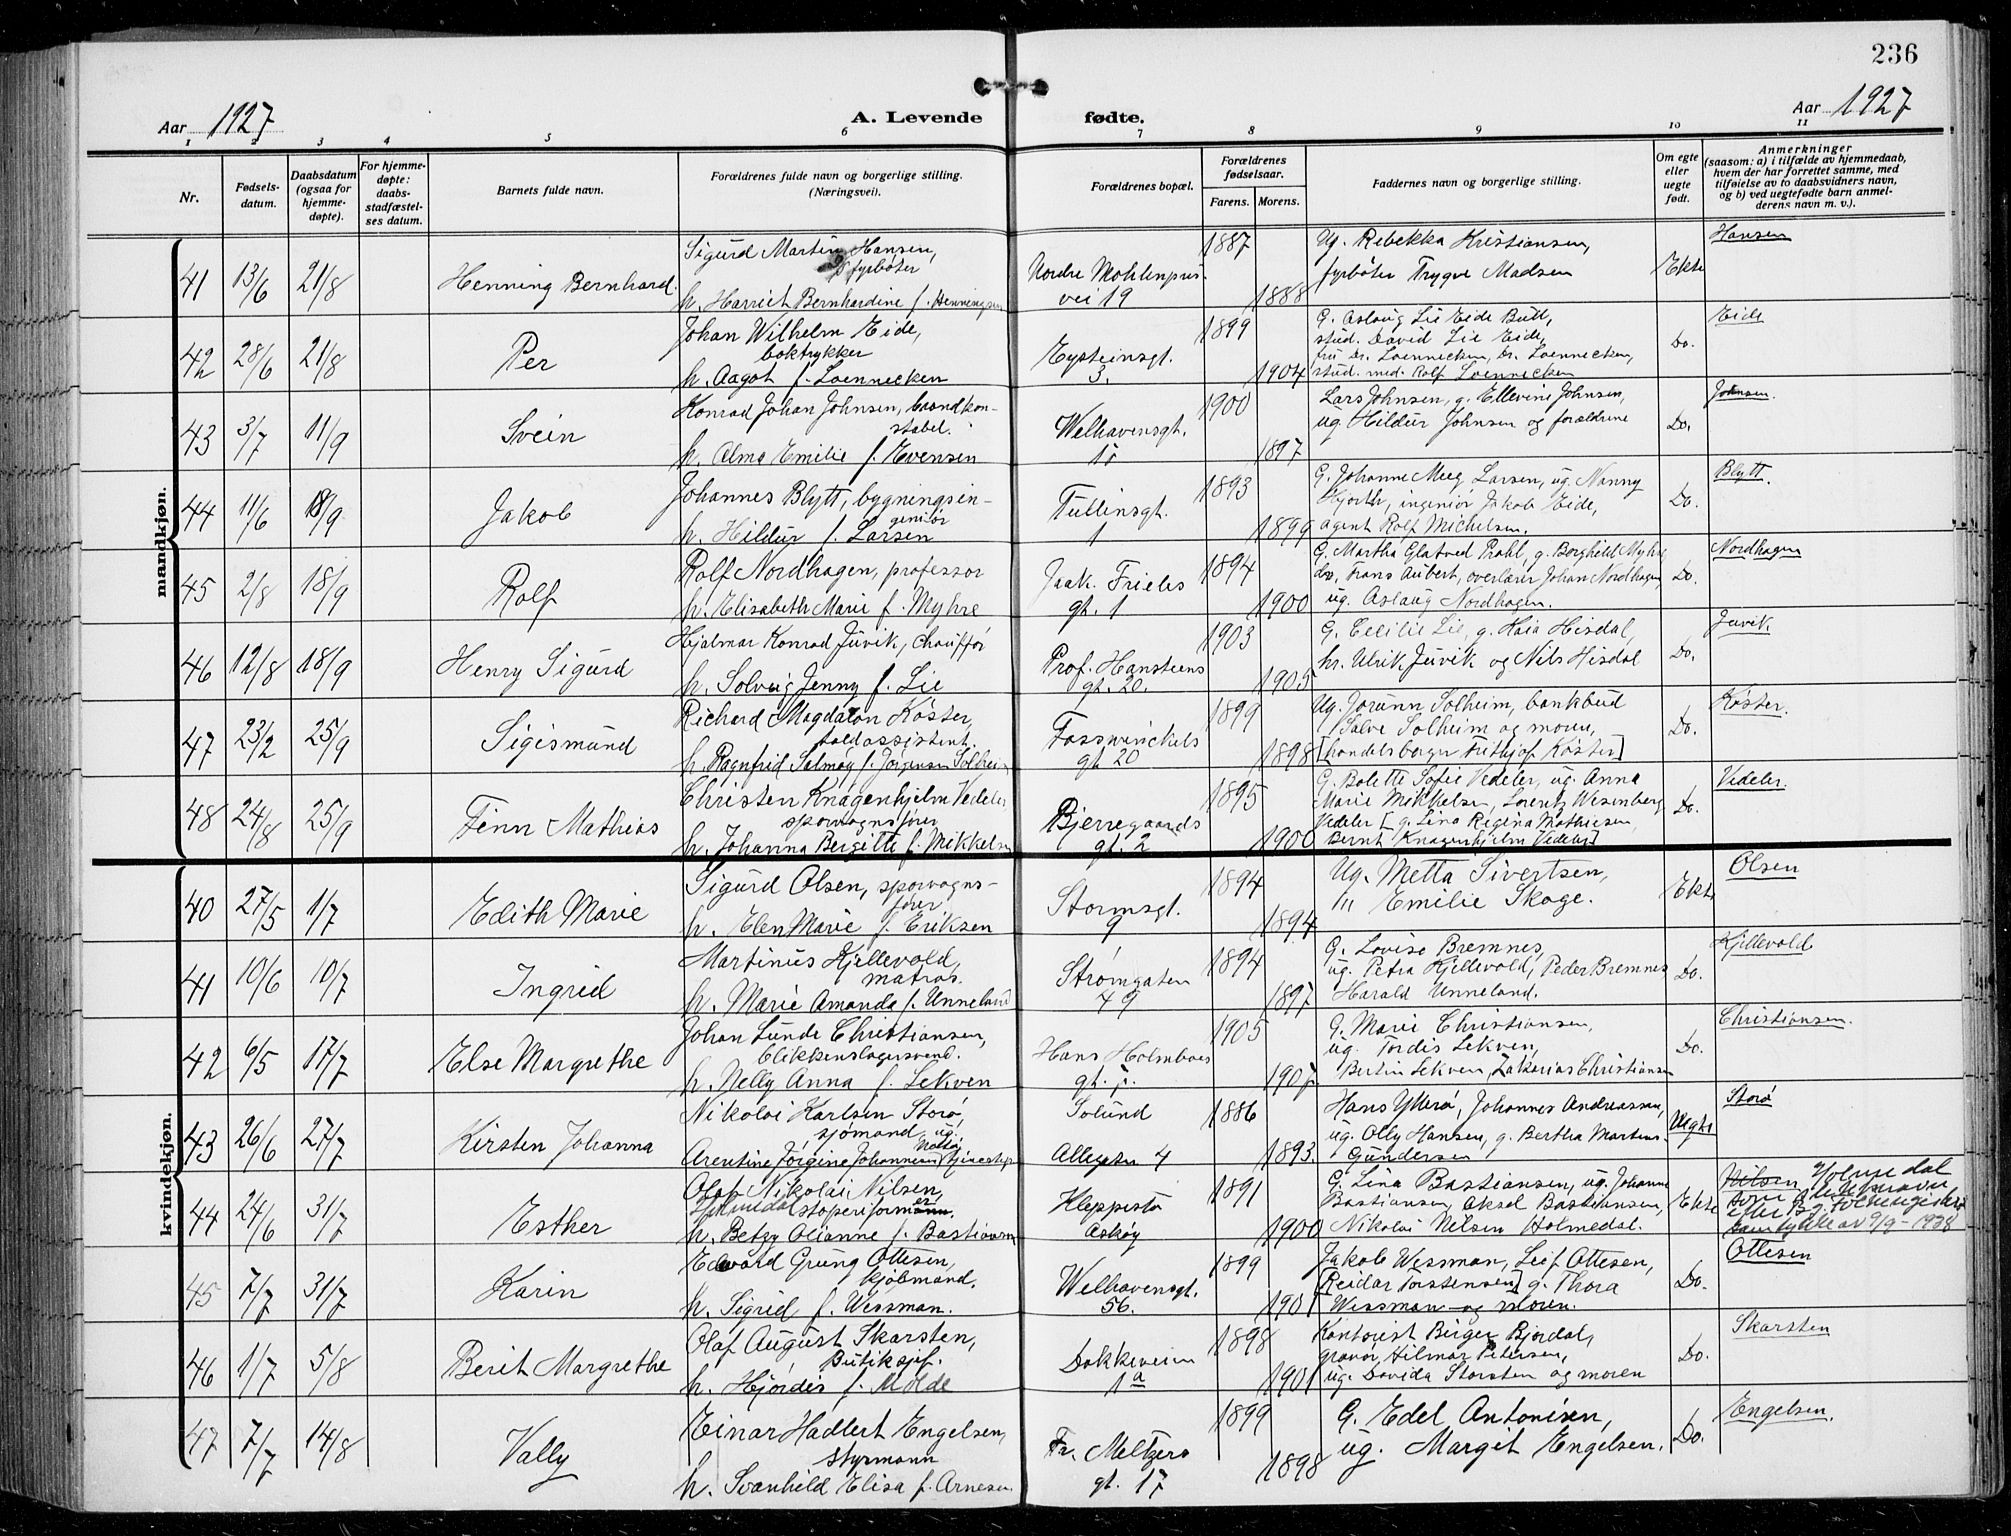 236
Aar 1927
A. Levende fødte.
Aar 1927
1 2 3 4 5 6 7 8 9 10 11
Nr.
Fødselsdatum.
Daabsdatum (ogsaa for hjemmedøpte).
For hjemmedøpte: daabsstadfæstelses datum.
Barnets fulde navn.
Forældrenes fulde navn og borgerlige stilling. (Næringsvei).
Forældrenes bopæl.
Forældrenes fødselsaar.
Farens. Morens.
Faddernes navn og borgerlige stilling.
Om egte eller uegte født.
Anmerkninger (saasom: a) i tilfælde av hjemmedaab, hvem der har forrettet samme, med tilføielse av to daabsvidners navn, og b) ved uegtefødte barn anmelderens navn m. v.).
mandkjøn.
41 13/6 21/8 Henning Bernhard.
Sigurd Martin Hansen,
fyrbøter
h. Harriet Bernhardine f. Henningsen
Nordre Møhlenpris
vei 19
1887 1888
Ug. Rebekka Kristiansen,
fyrbøter Trygve Madsen
Ekte
Hansen
42 28/6 21/8 Per
Johan Wilhelm Eide,
boktrykker
h. Aagot f. Loennecken
Eysteinsgt.
3.
1899 1904
G. Aslaug Lie Eide Bull,
stud. David Lie Eide,
fru Dr. Loennecken, Dr. Loennecken,
stud. med. Rolf Loennecken
Do.
Eide
43 3/7 11/9 Svein
Konrad Johan Johnsen, brandkon-
stabel.
h. Alma Emilie f. Evensen
Welhavensgt.
1900 1897
Lars Johnsen, g. Ellevine Johnsen,
ug. Hildur Johnsen og forældrene
Do.
Johnsen.
44 11/6 18/9 Jakob
Johannes Blytt, bygningsin-
geniør
h. Hildur f. Larsen
Tullinsgt.
1
1893 1899
G. Johanne Meeg Larsen, ug. Nanny
Hjorth, ingeniør Jakob Eide,
agent Rolf Michelsen.
Do.
Blytt.
45 2/8 18/9 Rolf
Rolf Nordhagen, professor
h. Elisabeth Marie f. Myhre
Jaak. Frieles
gt. 1
1894 1900
G. Martha Glatved Prahl, g. Borghild Myhre
dr. Frans Aubert, overlærer Johan Nordhagen,
ug. Aslaug Nordhagen.
Do.
Nordhagen
46 12/8 18/9 Henry Sigurd
Hjalmar Konrad Juvik, Chauffør
h. Solveig Jenny f. Lie
Prof. Hansteens
gt. 20.
1903 1905
G. Cecilie Lie, g. Kaia Hisdal,
hr. Ulrik Juvik og Nils Hisdal
Do.
Juvik
47 23/2 25/9 Sigismund
Richard Magdalon Køster,
toldassistent.
h. Ragnfrid Salmøy f. Jørgensen Solheim
Fosswinckels
gt 20
1899 1898
Ug. Jorunn Solheim, bankbud
Salve Solheim og moren,
[handelsborger Frithjof Køster]
Do.
Køster.
48 24/8 25/9 Finn Mathias
Christen Knagenhjelm Vedeler,
sporvognsfører
h. Johanna Bergitte f. Mikkelsen
Bjerregaards
gt. 2
1895 1900
G. Bolette Sofie Vedeler, ug. Anna
Marie Mikkelsen, Lorentz Wesenberg
Vedeler [g. Lina Regina Mathiesen,
Bernt Knagenhjelm Vedeler]
Do.
Vedeler.
kvindekjøn.
40 27/5 1/7 Edith Marie
Sigurd Olsen, sporvogns-
fører
h. Elen Marie f. Eriksen
Stormsgt.
9
1894 1894
Ug. Metta Sivertsen,
" Emilie Skage.
Ekte
Olsen
41 10/6 10/7 Ingrid
Martinus Kjellevold,
matros.
h. Marie Amanda f. Unneland
Strømgaten
49
1894 1897
G. Lovise Bremnes,
ug. Petra Kjellevold, Peder Bremnes
Harald Unneland.
Do.
Kjellevold
42 6/5 17/7 Else Margrethe
Johan Lunde Christiansen,
blikkenslagersvend.
h. Nelly Anna f. Lekven
Hans Holmboes
gt. 5.
1905 1907.
G. Marie Christiansen,
ug. Tordis Lekven,
Bertin Lekven, Zakarias Christiansen
Do.
Christiansen.
43 26/6 27/7 Kirsten Johanna
Nikolai Karlsen Storø,
sjømand, ug.
Arentine Jørgine Johannesen
Solund
Allegaten 4
1886 1893.
Hans Ytterø, Johannes Andreassen,
ug. Olly Hansen, g. Bertha Martens
Gundersen
Uegte
Storø
44 24/6 31/7 Esther
Olaf Nikolai Nilsen,
støperiformann.
h. Betzy Olianne f. Bastiansen
Kleppestø
Askøy
1891 1900
G. Lina Bastiansen, ug. Johanne
Bastiansen, Aksel Bastiansen,
Nikolai Nilsen Holmedal.
Ekte
Nilsen
av 9/9-1938
45 7/7 31/7 Karin
Edvard Grung Ottesen,
kjøbmand.
h. Sigrid f. Wessman.
Welhavensgt.
56.
1899 1901
Jakob Wessman, Leif Ottesen,
[Reidar Torstensen] g. Thora
Wessman og moren.
Do.
Ottesen
46 1/7 5/8 Berit Margrethe
Olaf August Skarsten,
Butiksjef.
h. Hjørdis f. Molde
Dokkeveien
1a
1898 1901
Kontorist Birger Bjordal,
gravør Hilmar Petersen,
ug. Davida Storsten og moren
Do.
Skarsten
47 7/7 14/8 Vally
Einar Hadlert Engelsen,
styrmann
h. Svanhild Elisa f. Arnesen.
Fr. Meltzers
gt. 17
1899 1898
G. Edel Antonisen,
ug. Margit Engelsen.
Do.
Engelsen.